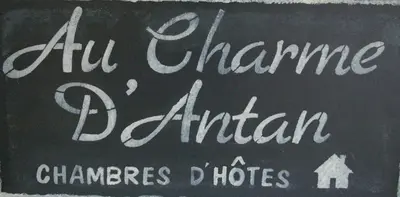 Au Charme
D'Antan
CHAMBRES D'HÔTES